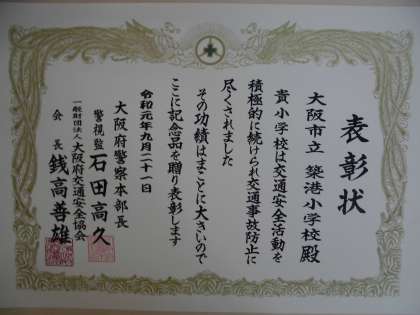 表彰状
大阪市立 築港小学校殿
貴小学校は交通安全活動を
積極的に続けられ交通事故防止に
尽くされました
その功績はまことに大きいので
ここに記念品を贈り表彰します
令和元年九月二十一日
大阪府警察本部長
警視監 石田高久
一般財団法人 大阪府交通安全協会
会長 銭高善雄